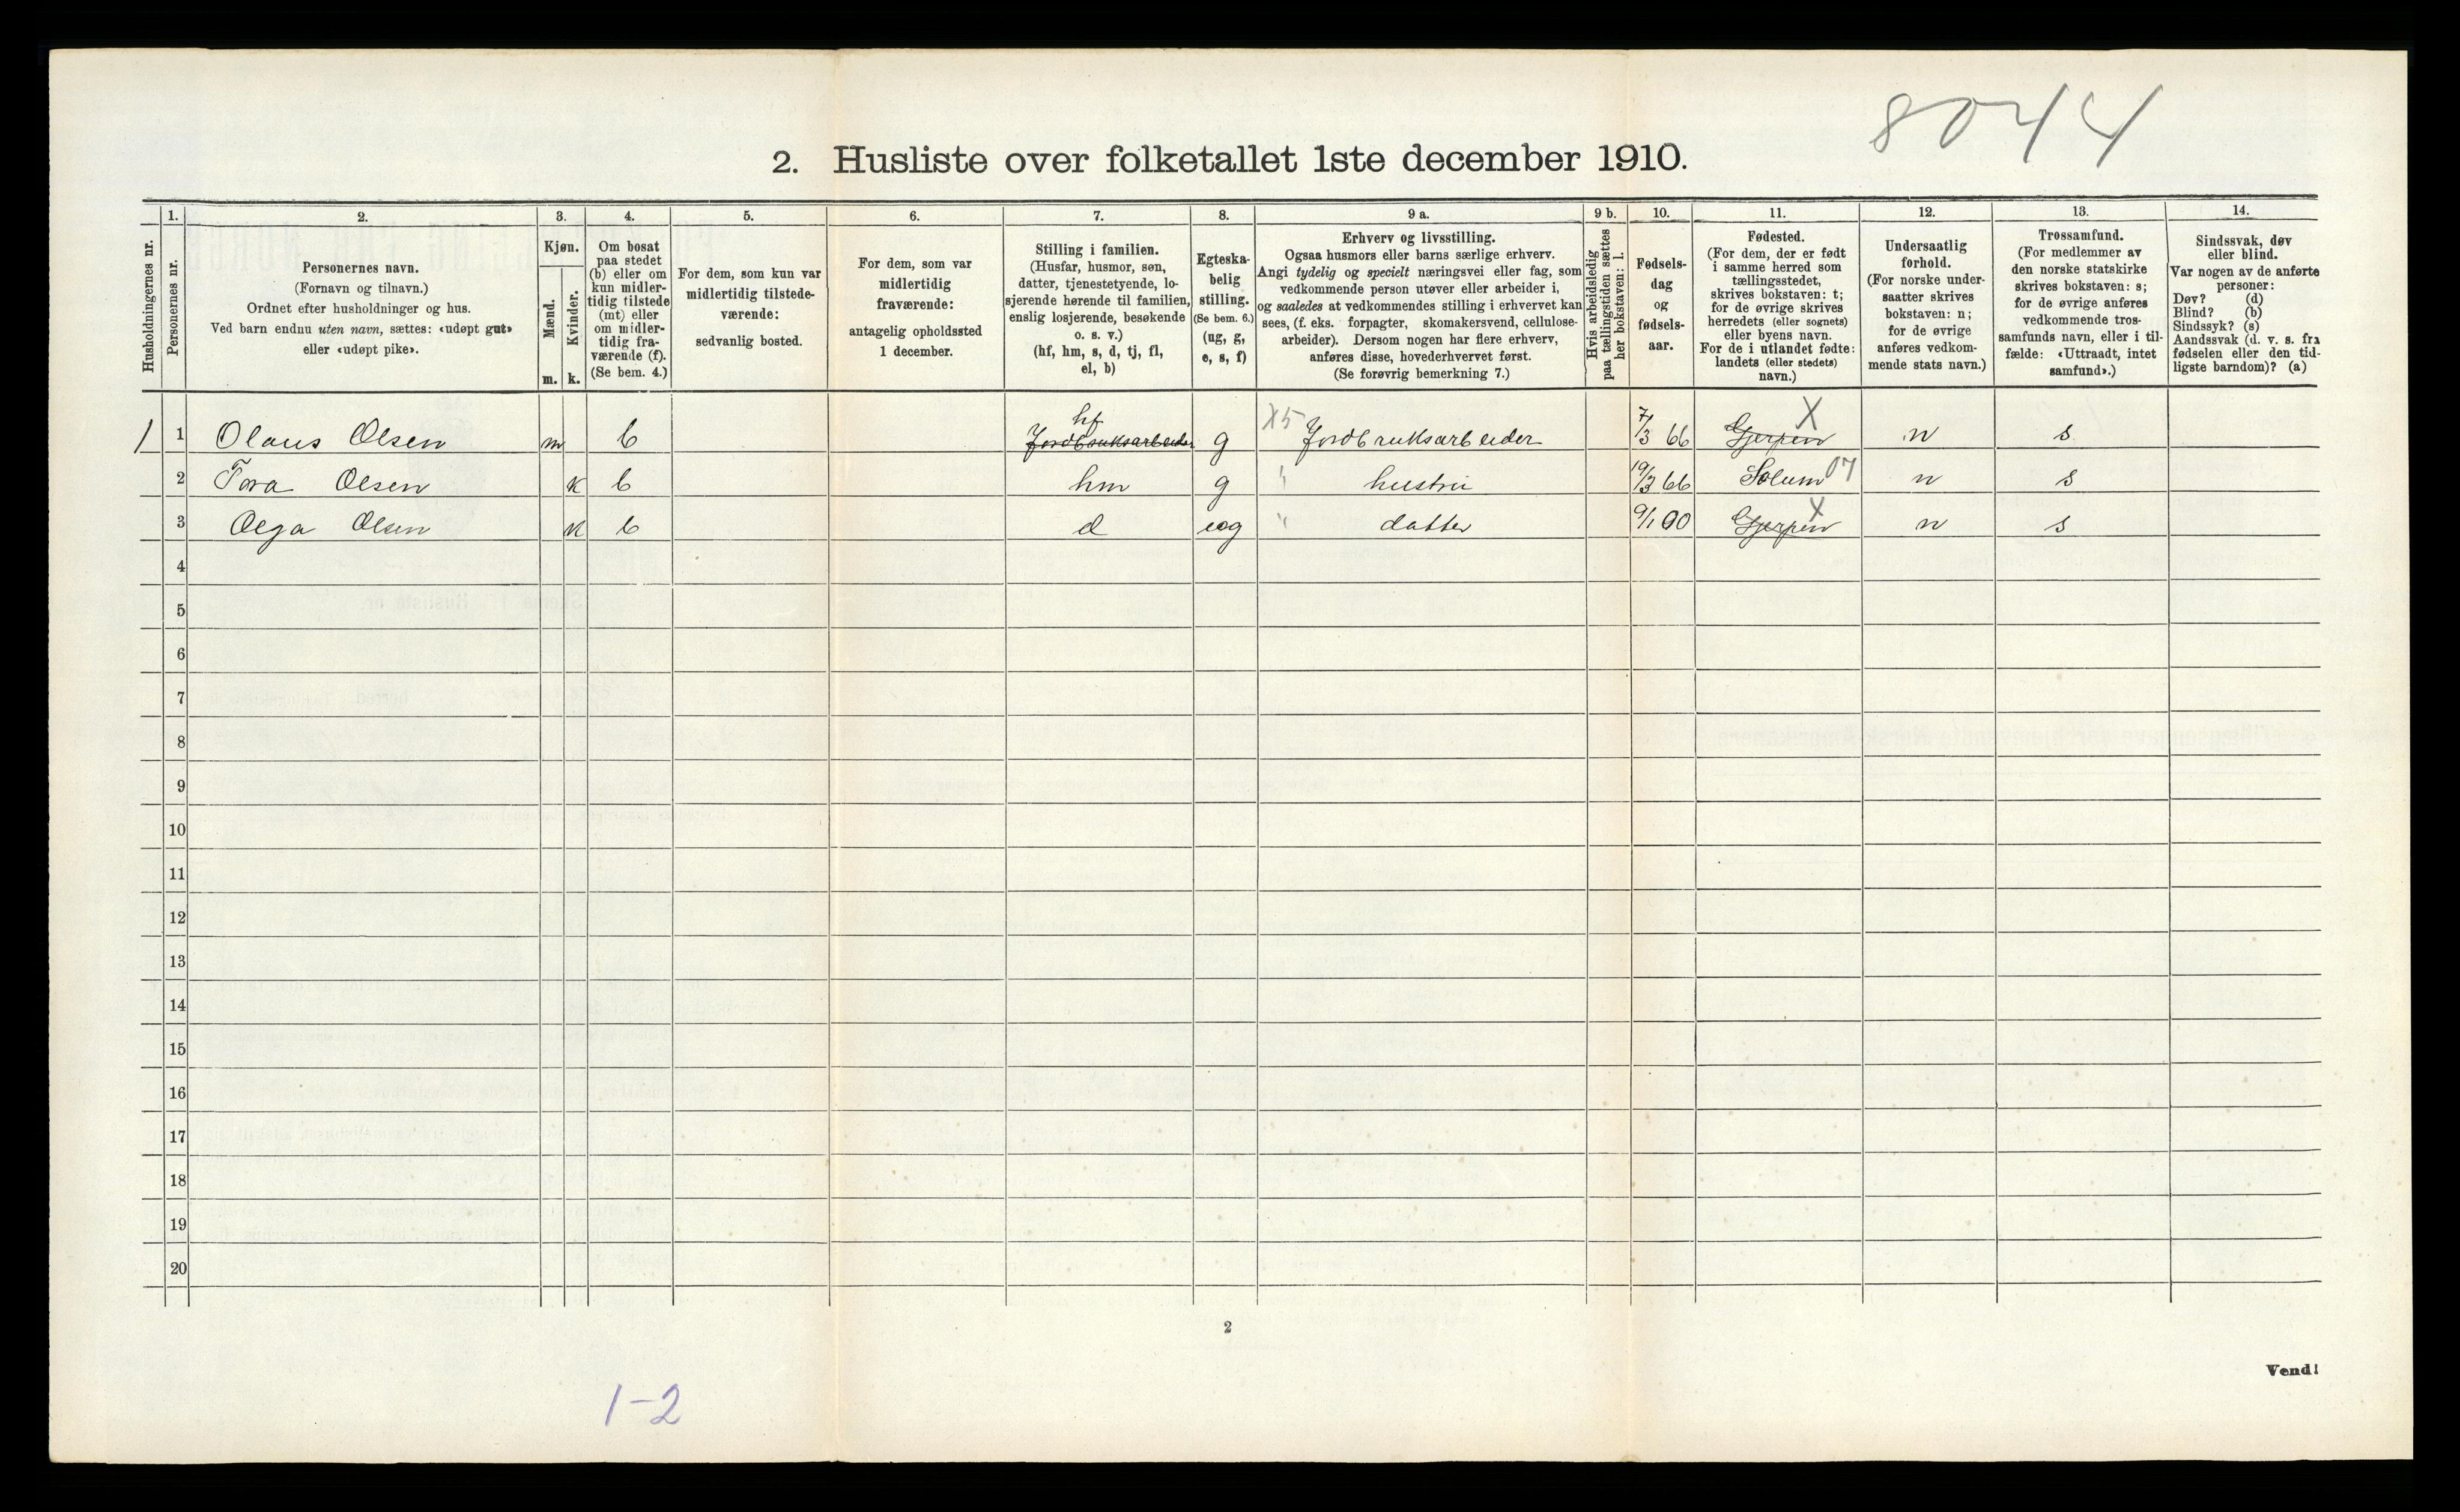 8044
2. Husliste over folketallet 1ste december 1910.
Husholdningernes nr.
1.
Personernes nr.
2.
Personernes navn.
(Fornavn og tilnavn.)
Ordnet efter husholdninger og hus.
Ved barn endnu uten navn, sættes: «udøpt gut»
eller «udøpt pike».
3.
Kjøn.
Mænd.
m.
Kvinder.
k.
4.
Om bosat
paa stedet
(b) eller om
kun midler-
tidig tilstede
(mt) eller
om midler-
tidig fra-
værende (f).
(Se bem. 4.)
5.
For dem, som kun var
midlertidig tilstede-
værende:
sedvanlig bosted.
6.
For dem, som var
midlertidig
fraværende:
antagelig opholdssted
1 december.
7.
Stilling i familien.
(Husfar, husmor, søn,
datter, tjenestetyende, lo-
sjerende hørende til familien,
enslig losjerende, besøkende
o. s. v.)
(hf, hm, s, d, tj, fl,
el, b)
8.
Egteska-
belig
stilling.
(Se bem. 6.)
(ug, g,
e, s, f)
9 a.
Erhverv og livsstilling.
Ogsaa husmors eller barns særlige erhverv.
Angi tydelig og specielt næringsvei eller fag, som
vedkommende person utøver eller arbeider i,
og saaledes at vedkommendes stilling i erhvervet kan
sees, (f. eks. forpagter, skomakersvend, cellulose-
arbeider). Dersom nogen har flere erhverv,
anføres disse, hovederhvervet først.
(Se forøvrig bemerkning 7.)
9 b.
Hvis arbeidsledig
paa tællingstiden sættes
her bokstaven: l.
10.
Fødsels-
dag
og
fødsels-
aar.
11.
Fødested.
(For dem, der er født
i samme herred som
tællingsstedet,
skrives bokstaven: t;
for de øvrige skrives
herredets (eller sognets)
eller byens navn.
For de i utlandet fødte:
landets (eller stedets)
navn.)
12.
Undersaatlig
forhold.
(For norske under-
saatter skrives
bokstaven: n;
for de øvrige
anføres vedkom-
mende stats navn.)
13.
Trossamfund.
(For medlemmer av
den norske statskirke
skrives bokstaven: s;
for de øvrige anføres
vedkommende tros-
samfunds navn, eller i til-
fælde: «Uttraadt, intet
samfund».)
14.
Sindssvak, døv
eller blind.
Var nogen av de anførte
personer:
Døv? (d)
Blind? (b)
Sindssyk? (s)
Aandssvak (d. v. s. fra
fødselen eller den tid-
ligste barndom)? (a)
1 1 Olaus Olsen m b hf Jordbruksarbeider g X5 Jordbruksarbeider 7/3 66 Gjerpen X n s
2 Tora Olsen k b hm g " hustru 19/3 66 Solum 07 n s
3 Olga Olsen k b d ug " datter 9/1 00 Gjerpen X n s
4
5
6
7
8
9
10
11
12
13
14
15
16
17
18
19
20
2
Vend!
1-2